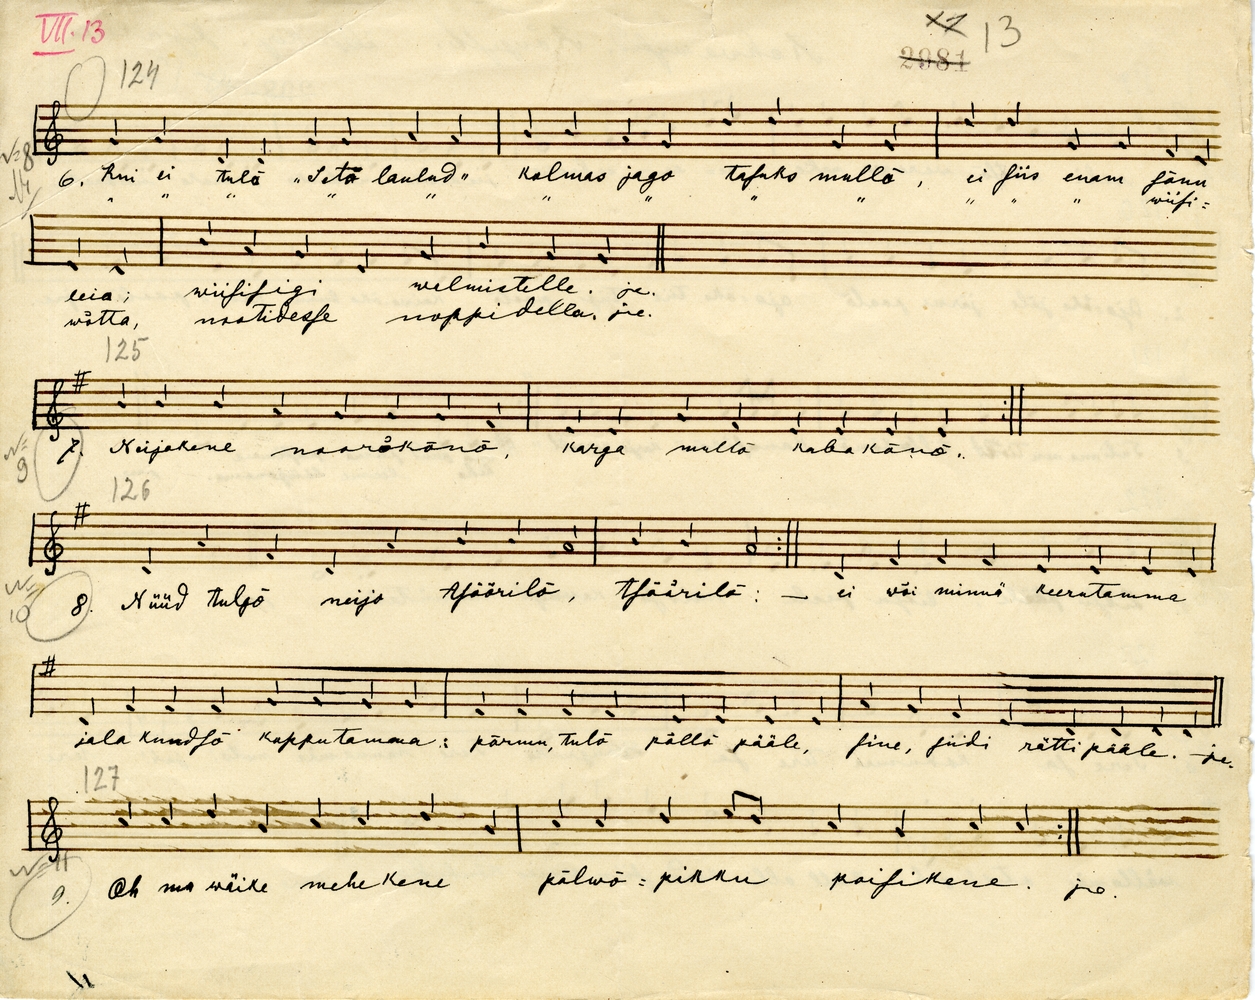 VII. 13
XI 13
2981
124
№ 8
14
6. Kui ei tulō „Setō laulud" kolmas jago tasuks mullō, ei siis enam sōnu
" " " " " " " " " " " " wiisi=
leia; wiisisigi welmistelle. je.
wōtta, nootidesse noppidella. jne.
125
№ 9
7. Neijokene noorōkōnō, karga mullō kabakōnō.
126
№ 10
8. Nüüd tulgō neijo tsōōrilō, tsōōrilō: — ei wōi minnä keerutamma
jala kundsō kopputamma: pōrmu, tulō pōllō pääle, sine, siidi rätti pääle. je.
127
№ 11
9. Oh ma wäike mehekene pōlwō=pikku poisikene. jne.